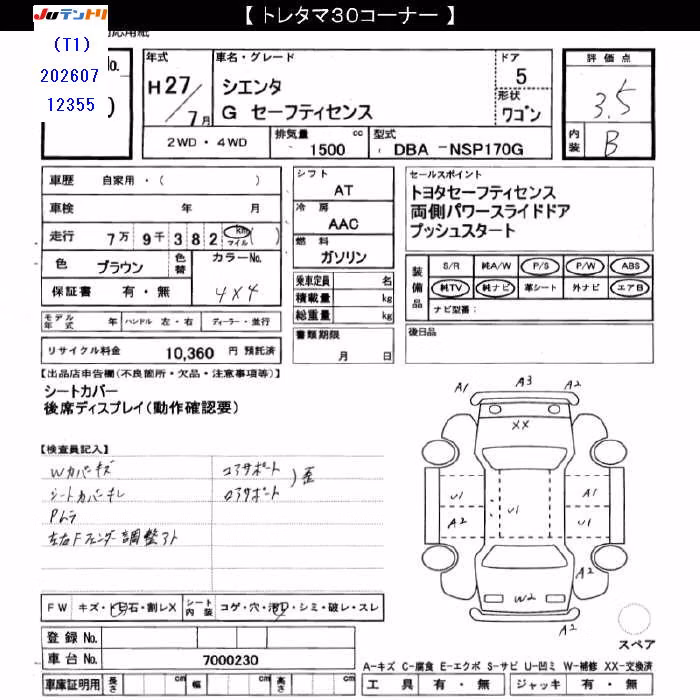 【 トレタマ30コーナー 】
Juテントリ
(T1)
202607
12355
応用紙
No.
年式
H27/7月
車名・グレード
シエンタ
G セーフティセンス
ドア
5
形状
ワゴン
評価点
3.5
内装
B
2WD・4WD
排気量
1500
cc
型式
DBA -NSP170G
車歴 自家用・( )
車検 年 月
走行 7万 9千 3 8 2 km マイル ( )
色 ブラウン
色替
カラーNo.
4X4
保証書 有・無
モデル年式 年 ハンドル 左・右 ディーラー・並行
リサイクル料金 10,360 円 預託済
シフト
AT
冷房
AAC
燃料
ガソリン
乗車定員 名
積載量 kg
総重量 kg
書類期限
月 日
セールスポイント
トヨタセーフティセンス
両側パワースライドドア
プッシュスタート
装備品
S/R 純A/W P/S P/W ABS
純TV 純ナビ 革シート 外ナビ エアB
ナビ型番:
後日品
【出品店申告欄(不良箇所・欠品・注意事項等)】
シートカバー
後席ディスプレイ(動作確認要)
【検査員記入】
Wカバーキズ
シートカバーキレ
Pムラ
左右Fフェンダー調整アト
コアサポート
ロアサポート
歪
A1 A3 A2
XX
U1
A2
U1
A1
U1
A2
A2
W2
A2
スペア
FW キズ・ヒ石・割レX
シート内装 コゲ・穴・汚レ・シミ・破レ・スレ
登録No.
車台No. 7000230
車庫証明用 長さ cm 幅 cm 高さ cm
A-キズ C-腐食 E-エクボ S-サビ U-凹ミ W-補修 XX-交換済
工具 有・無 ジャッキ 有・無